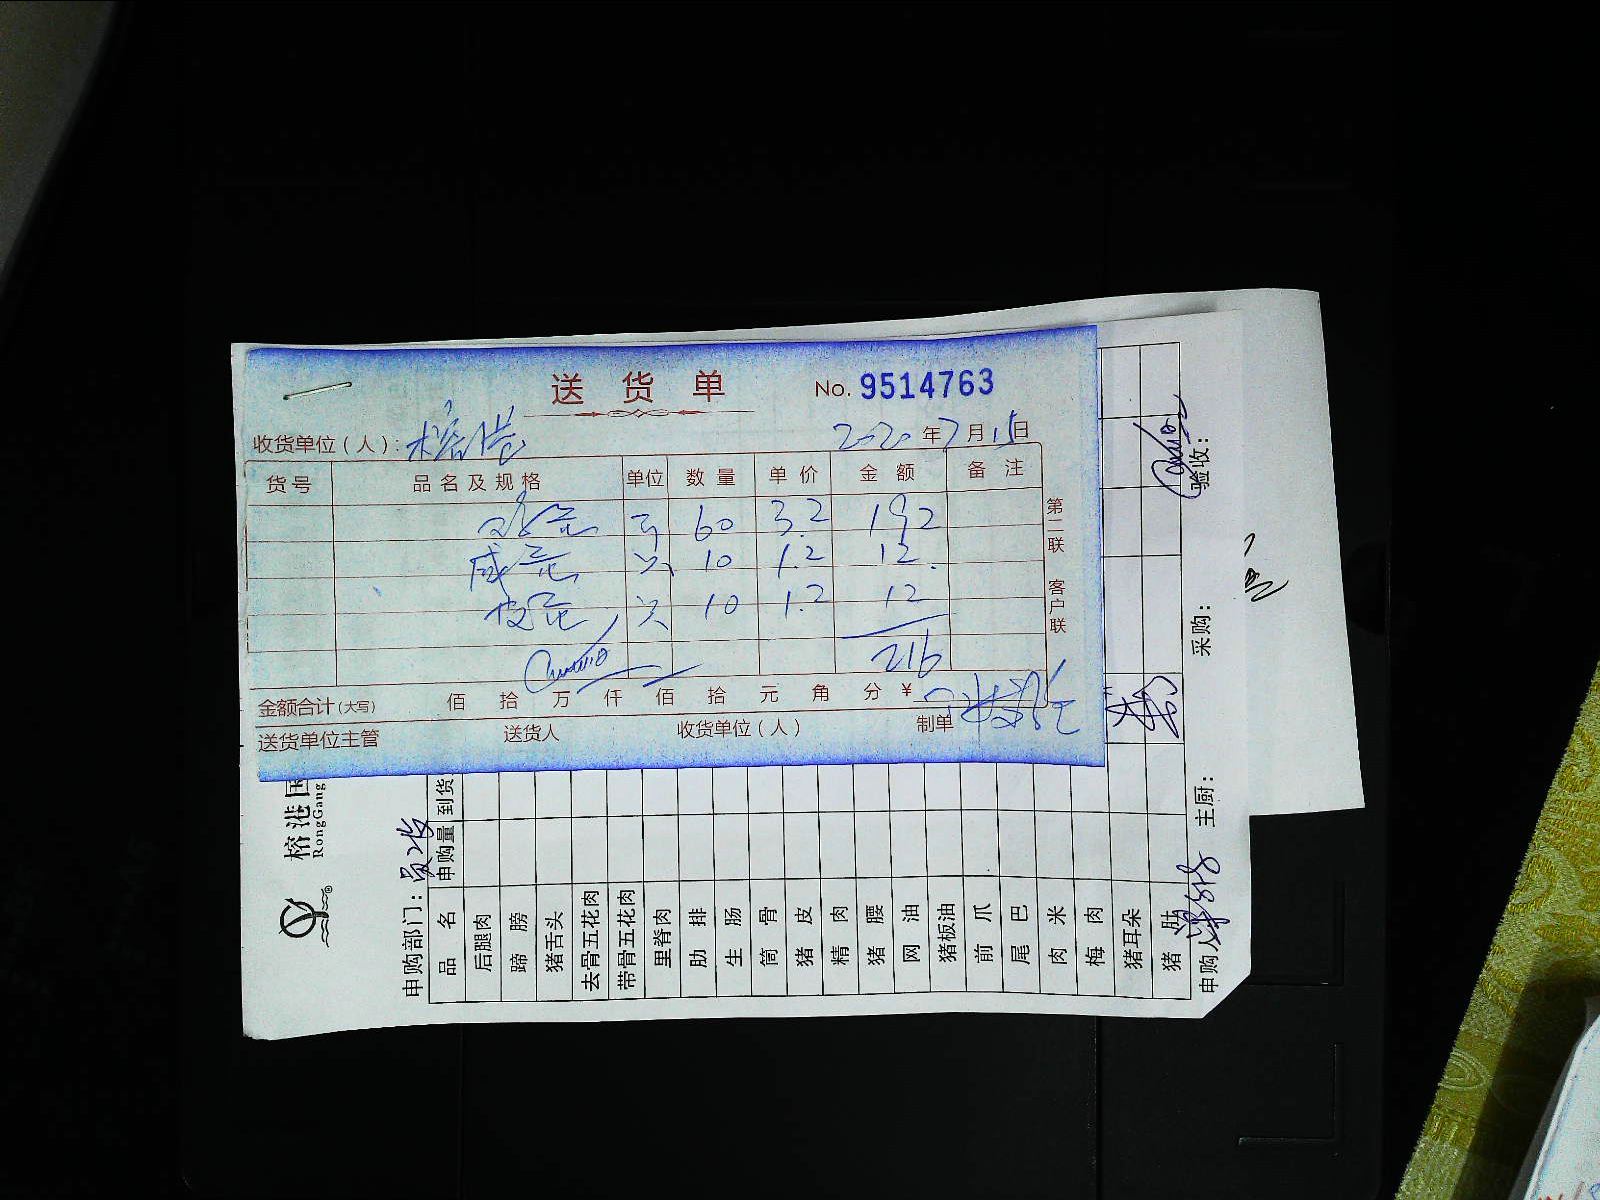 送货单
No. 9514763
收货单位（人）：榕港
2020年7月15日
货号 品名及规格 单位 数量 单价 金额 备注
鸡蛋 斤 60 3.2 192
咸蛋 只 10 1.2 12.
皮蛋 只 10 1.2 12
216
金额合计(大写) 佰 拾 万 仟 佰 拾 元 角 分 ¥
送货单位主管 送货人 收货单位（人） 制单
第二联 客户联
榕港国
RongGang
申购部门：
品名 申购量 到货
后腿肉
蹄膀
猪舌头
去骨五花肉
带骨五花肉
里脊肉
肋排
生肠
筒骨
猪皮
精肉
猪腰
网油
猪板油
前爪
尾巴
肉米
梅肉
猪耳朵
猪肚
申购人 主厨： 采购： 验收：